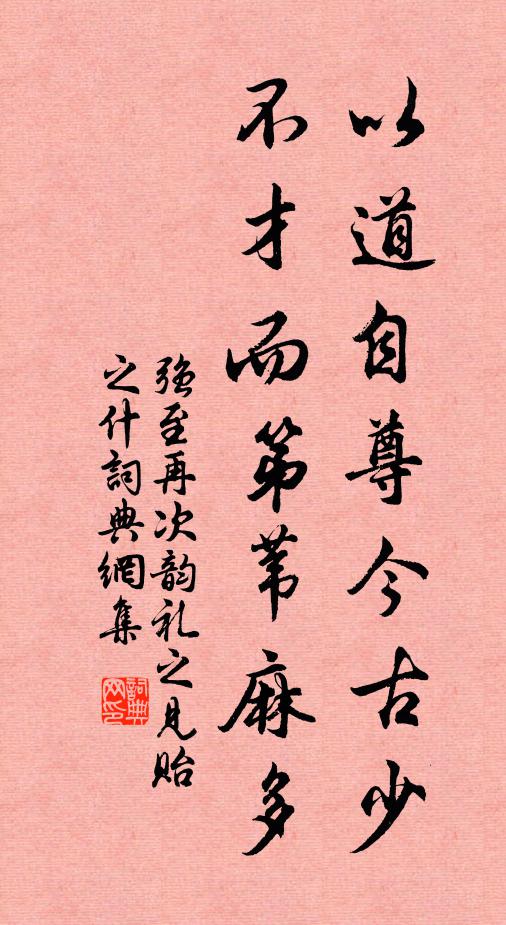 以道自尊今古少
不才而第苇麻多
強至再次韵礼之見貽
之什詞典網集
詞典網印